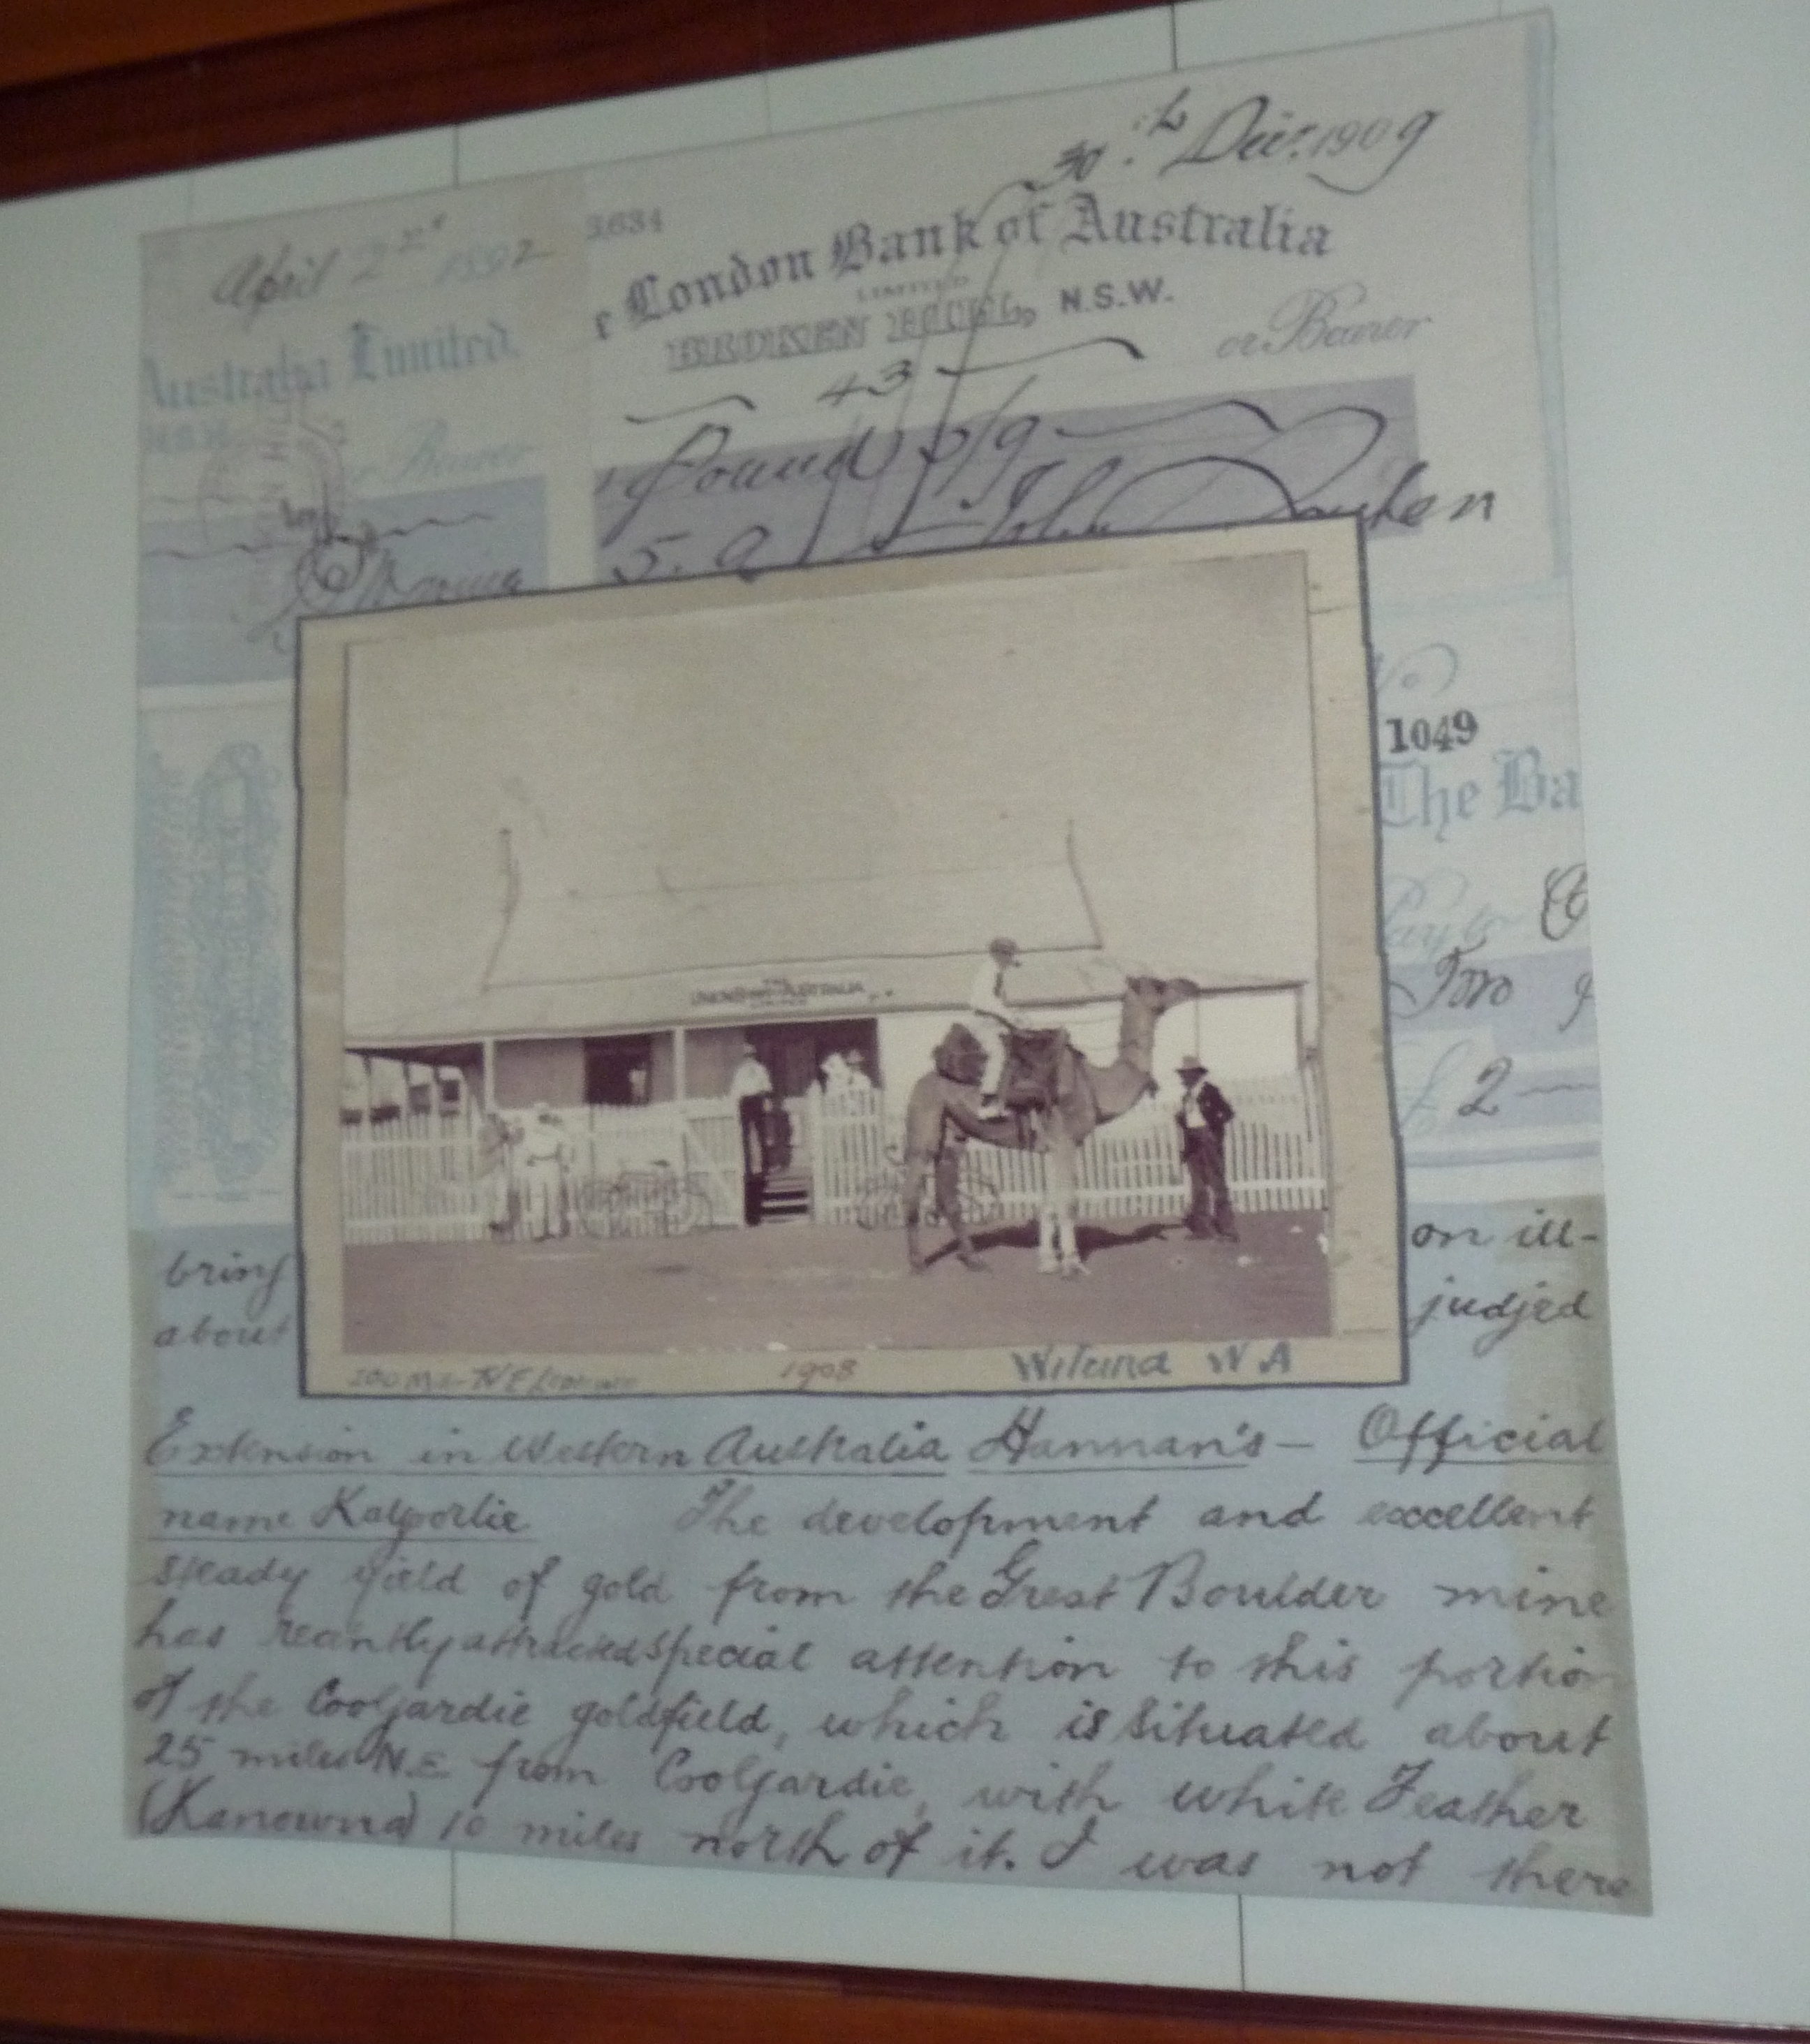 30th Decr. 1909
April 2nd 1892
3634
e London Bank of Australia
LIMITED
BROKEN HILL, N.S.W.
Australia Limited.
43
or Bearer
or Bearer
Pound 5/9
5. 9
John
No
1049
The Ba
Pay to
Two
£ 2
UNION BANK OF AUSTRALIA
bring
on ill-
about
judjed
1908
Wiluna W A
Extension in Western Australia Hannan's - Official
name Kalgoorlie The development and exccellent
steady yield of gold from the Great Boulder mine
has recently attracted special attention to this portion
of the Coolgardie goldfield, which is situated about
25 miles N.E from Coolgardie, with white Feather
(Kanowna) 10 miles north of it. I was not there